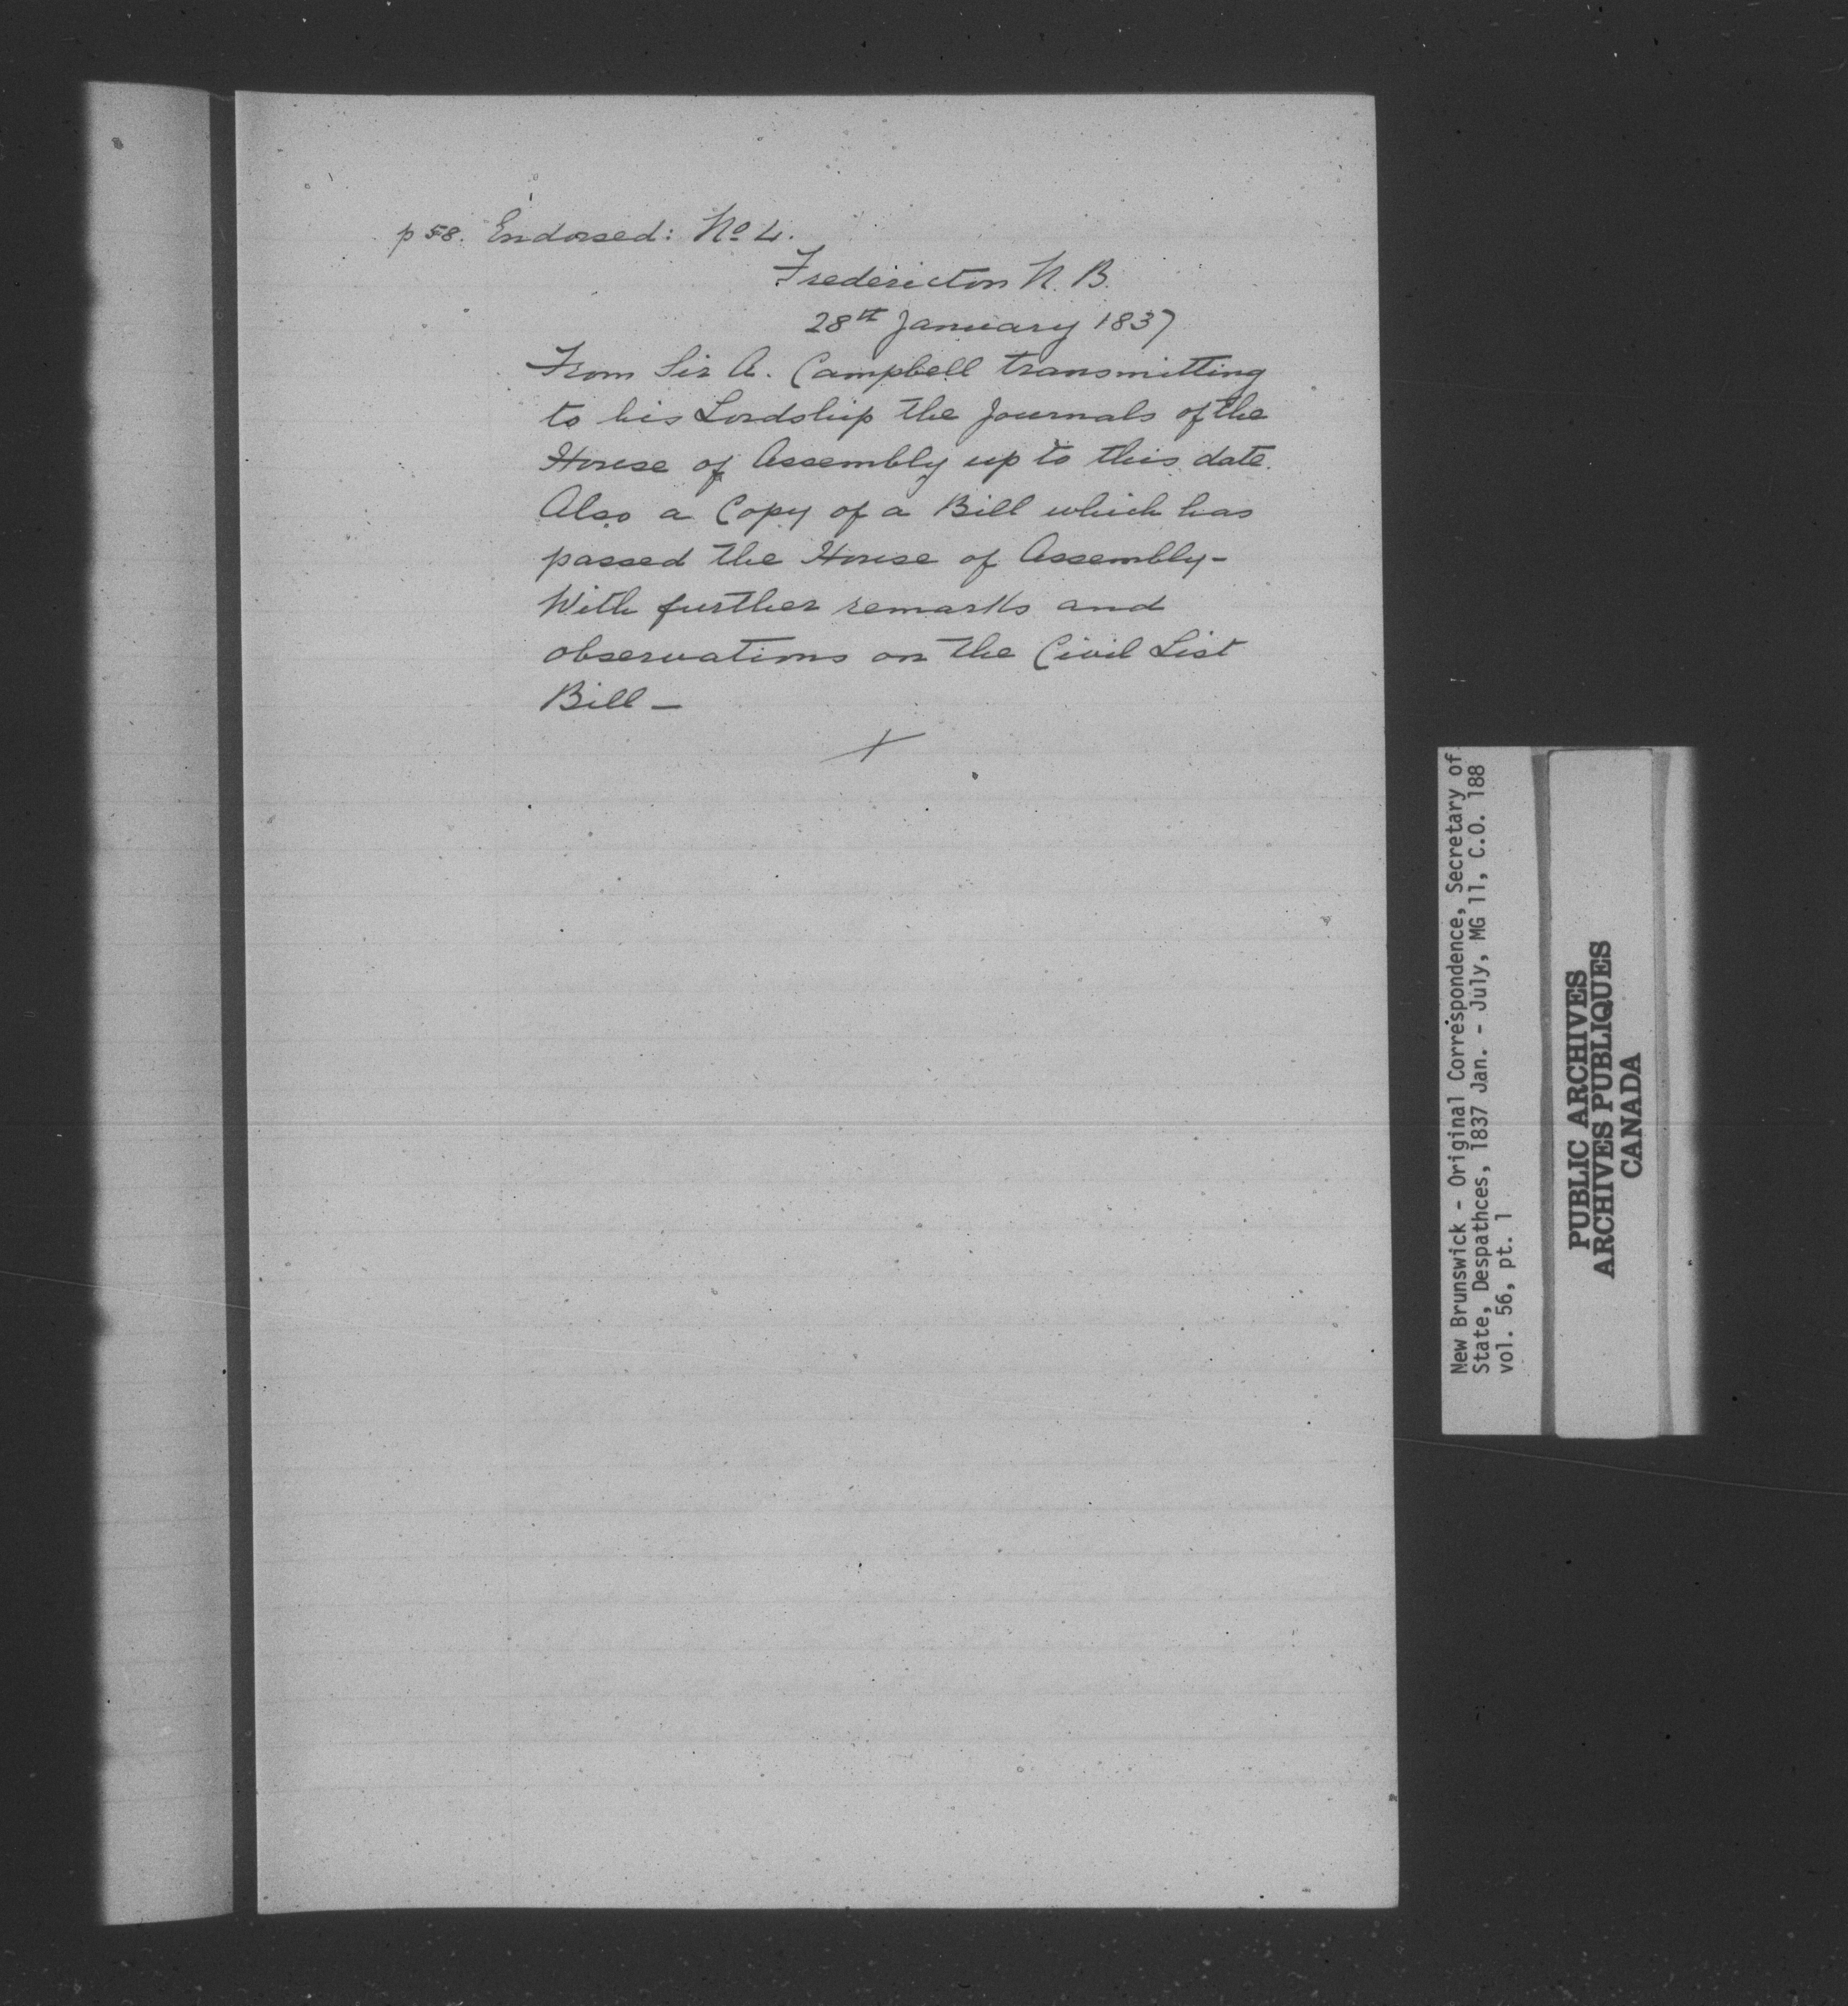 p 58. Endorsed: No 4.
Fredericton N. B.
28th January 1837
From Sir A. Campbell transmitting
to his Lordship the Journals of the
House of Assembly up to this date.
Also a Copy of a Bill which has
passed the House of Assembly-
With further remarks and
observations on the Civil List
Bill —
New Brunswick - Original Correspondence, Secretary of
State, Despathces, 1837 Jan. - July, MG 11, C.O. 188
vol. 56, pt. 1
PUBLIC ARCHIVES
ARCHIVES PUBLIQUES
CANADA